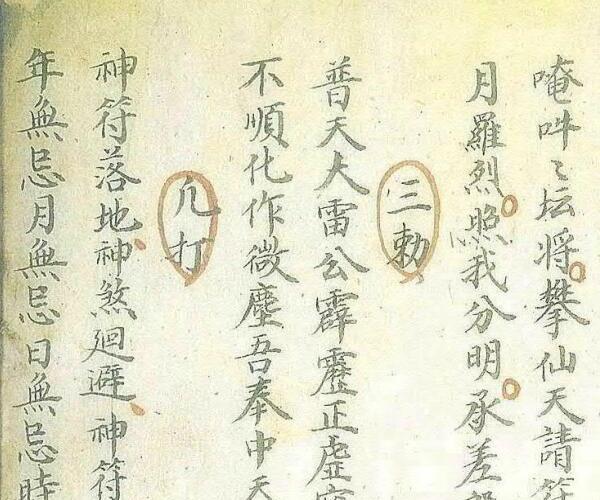 唵吽〻坛将攀仙天請符
月羅烈照我分明承差
三勅
普天大雷公霹靂正虚空
不順化作微塵吾奉中天
凢打
神符落地神煞廻避神符
年無忌月無忌日無忌時